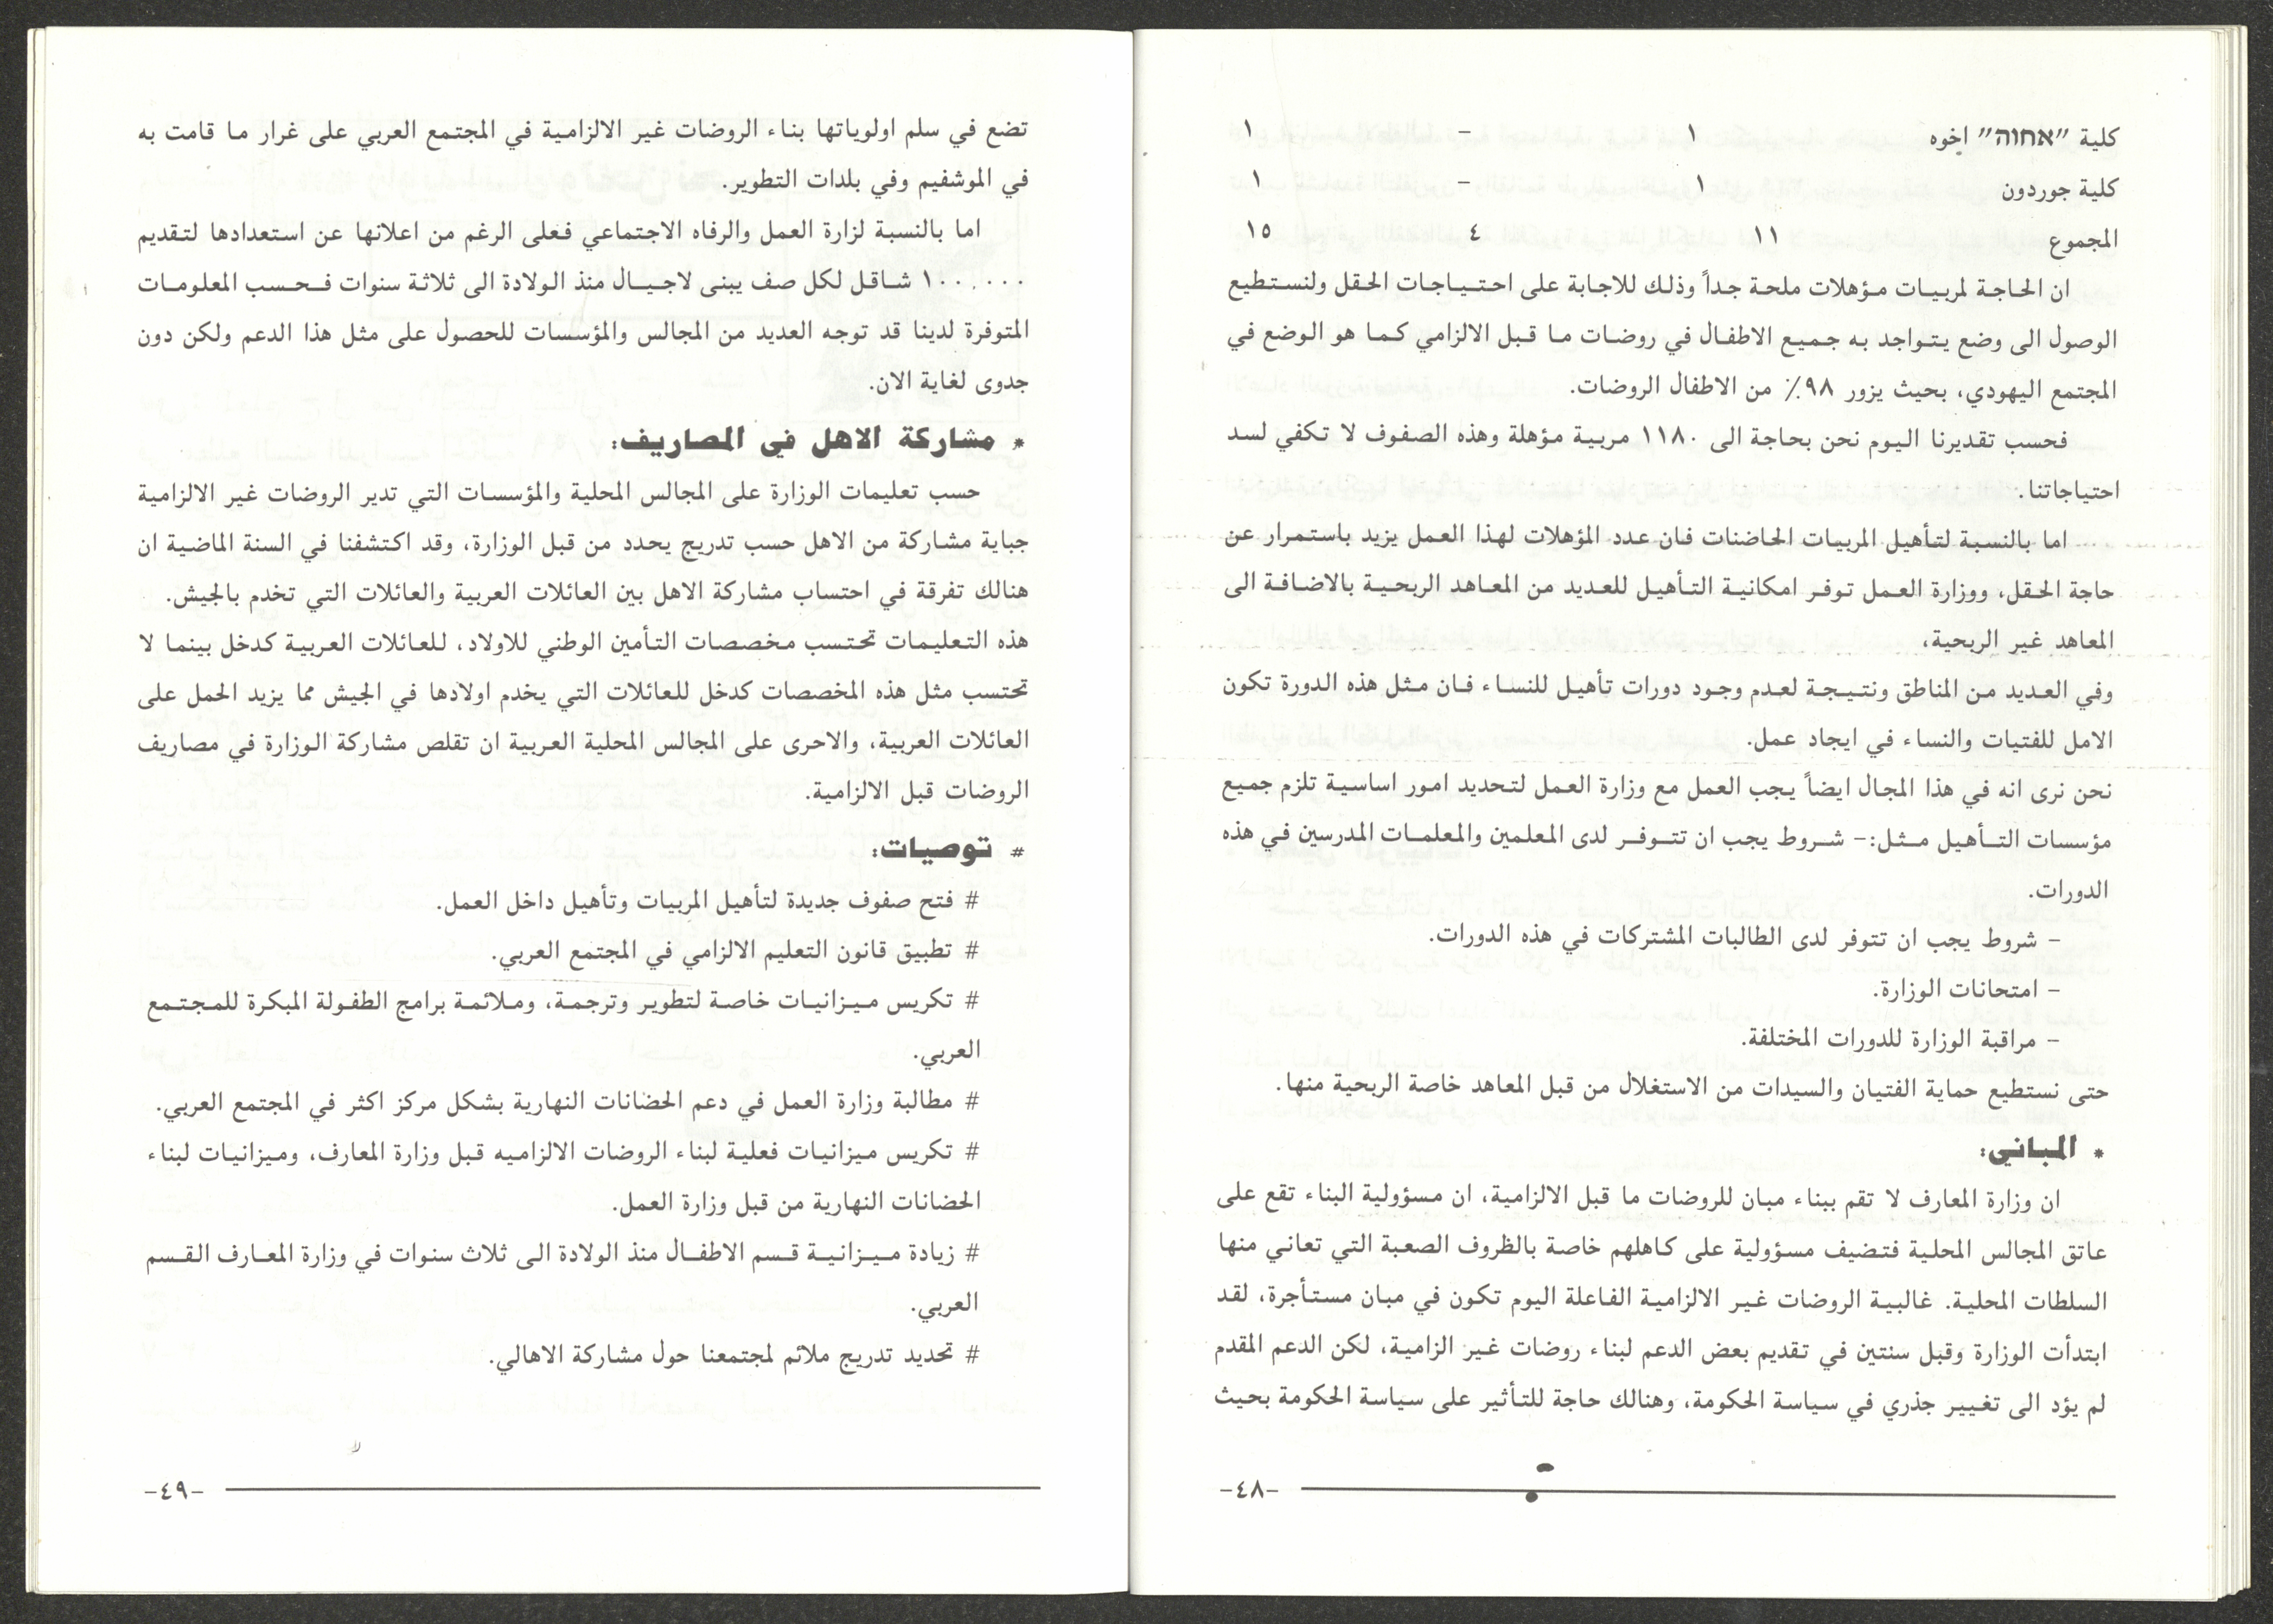 كلية "אחוה" اخوه ١ - ١
كلية جوردون ١ - ١
المجموع ١١ ٤ ١٥
ان الحاجة لمربيات مؤهلات ملحة جداً وذلك للاجابة على احتياجات الحقل ولنستطيع
الوصول الى وضع يتواجد به جميع الاطفال في روضات ما قبل الالزامي كما هو الوضع في
المجتمع اليهودي، بحيث يزور ٩٨٪ من الاطفال الروضات.
فحسب تقديرنا اليوم نحن بحاجة الى ١١٨٠ مربية مؤهلة وهذه الصفوف لا تكفي لسد
احتياجاتنا.
اما بالنسبة لتأهيل المربيات الحاضنات فان عدد المؤهلات لهذا العمل يزيد باستمرار عن
حاجة الحقل، ووزارة العمل توفر امكانية التأهيل للعديد من المعاهد الربحية بالاضافة الى
المعاهد غير الربحية،
وفي العديد من المناطق ونتيجة لعدم وجود دورات تأهيل للنساء فان مثل هذه الدورة تكون
الامل للفتيات والنساء في ايجاد عمل.
نحن نرى انه في هذا المجال ايضاً يجب العمل مع وزارة العمل لتحديد امور اساسية تلزم جميع
مؤسسات التأهيل مثل:- شروط يجب ان تتوفر لدى المعلمين والمعلمات المدرسين في هذه
الدورات.
- شروط يجب ان تتوفر لدى الطالبات المشتركات في هذه الدورات.
- امتحانات الوزارة.
- مراقبة الوزارة للدورات المختلفة.
حتى نستطيع حماية الفتيان والسيدات من الاستغلال من قبل المعاهد خاصة الربحية منها.
* المباني:
ان وزارة المعارف لا تقم ببناء مبان للروضات ما قبل الالزامية، ان مسؤولية البناء تقع على
عاتق المجالس المحلية فتضيف مسؤولية على كاهلهم خاصة بالظروف الصعبة التي تعاني منها
السلطات المحلية. غالبية الروضات غير الالزامية الفاعلة اليوم تكون في مبان مستأجرة، لقد
ابتدأت الوزارة وقبل سنتين في تقديم بعض الدعم لبناء روضات غير الزامية، لكن الدعم المقدم
لم يؤد الى تغيير جذري في سياسة الحكومة، وهنالك حاجة للتأثير على سياسة الحكومة بحيث
-٤٨-
تضع في سلم اولوياتها بناء الروضات غير الالزامية في المجتمع العربي على غرار ما قامت به
في الموشفيم وفي بلدات التطوير.
اما بالنسبة لزارة العمل والرفاه الاجتماعي فعلى الرغم من اعلانها عن استعدادها لتقديم
١٠٠.٠٠٠ شاقل لكل صف يبنى لاجيال منذ الولادة الى ثلاثة سنوات فحسب المعلومات
المتوفرة لدينا قد توجه العديد من المجالس والمؤسسات للحصول على مثل هذا الدعم ولكن دون
جدوى لغاية الان.
* مشاركة الاهل في المصاريف:
حسب تعليمات الوزارة على المجالس المحلية والمؤسسات التي تدير الروضات غير الالزامية
جباية مشاركة من الاهل حسب تدريج يحدد من قبل الوزارة، وقد اكتشفنا في السنة الماضية ان
هنالك تفرقة في احتساب مشاركة الاهل بين العائلات العربية والعائلات التي تخدم بالجيش.
هذه التعليمات تحتسب مخصصات التأمين الوطني للاولاد، للعائلات العربية كدخل بينما لا
تحتسب مثل هذه المخصصات كدخل للعائلات التي يخدم اولادها في الجيش مما يزيد الحمل على
العائلات العربية، والاحرى على المجالس المحلية العربية ان تقلص مشاركة الوزارة في مصاريف
الروضات قبل الالزامية.
# توصيات:
# فتح صفوف جديدة لتأهيل المربيات وتأهيل داخل العمل.
# تطبيق قانون التعليم الالزامي في المجتمع العربي.
# تكريس ميزانيات خاصة لتطوير وترجمة، وملائمة برامج الطفولة المبكرة للمجتمع
العربي.
# مطالبة وزارة العمل في دعم الحضانات النهارية بشكل مركز اكثر في المجتمع العربي.
# تكريس ميزانيات فعلية لبناء الروضات الالزاميه قبل وزارة المعارف، وميزانيات لبناء
الحضانات النهارية من قبل وزارة العمل.
# زيادة ميزانية قسم الاطفال منذ الولادة الى ثلاث سنوات في وزارة المعارف القسم
العربي.
# تحديد تدريج ملائم لمجتمعنا حول مشاركة الاهالي.
-٤٩-